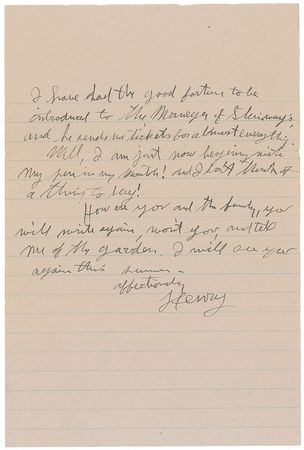 I have had the good fortune to be
introduced to the Manager of Steinway's
and he sends me tickets for almost everything.
Well, I am just now begging with
my pen in my mouth! and I can't think of
a thing to say!
How are you and the family, you
will write again, won't you, and tell
me of the garden. I will see you
again this summer -
affectionately
Henry